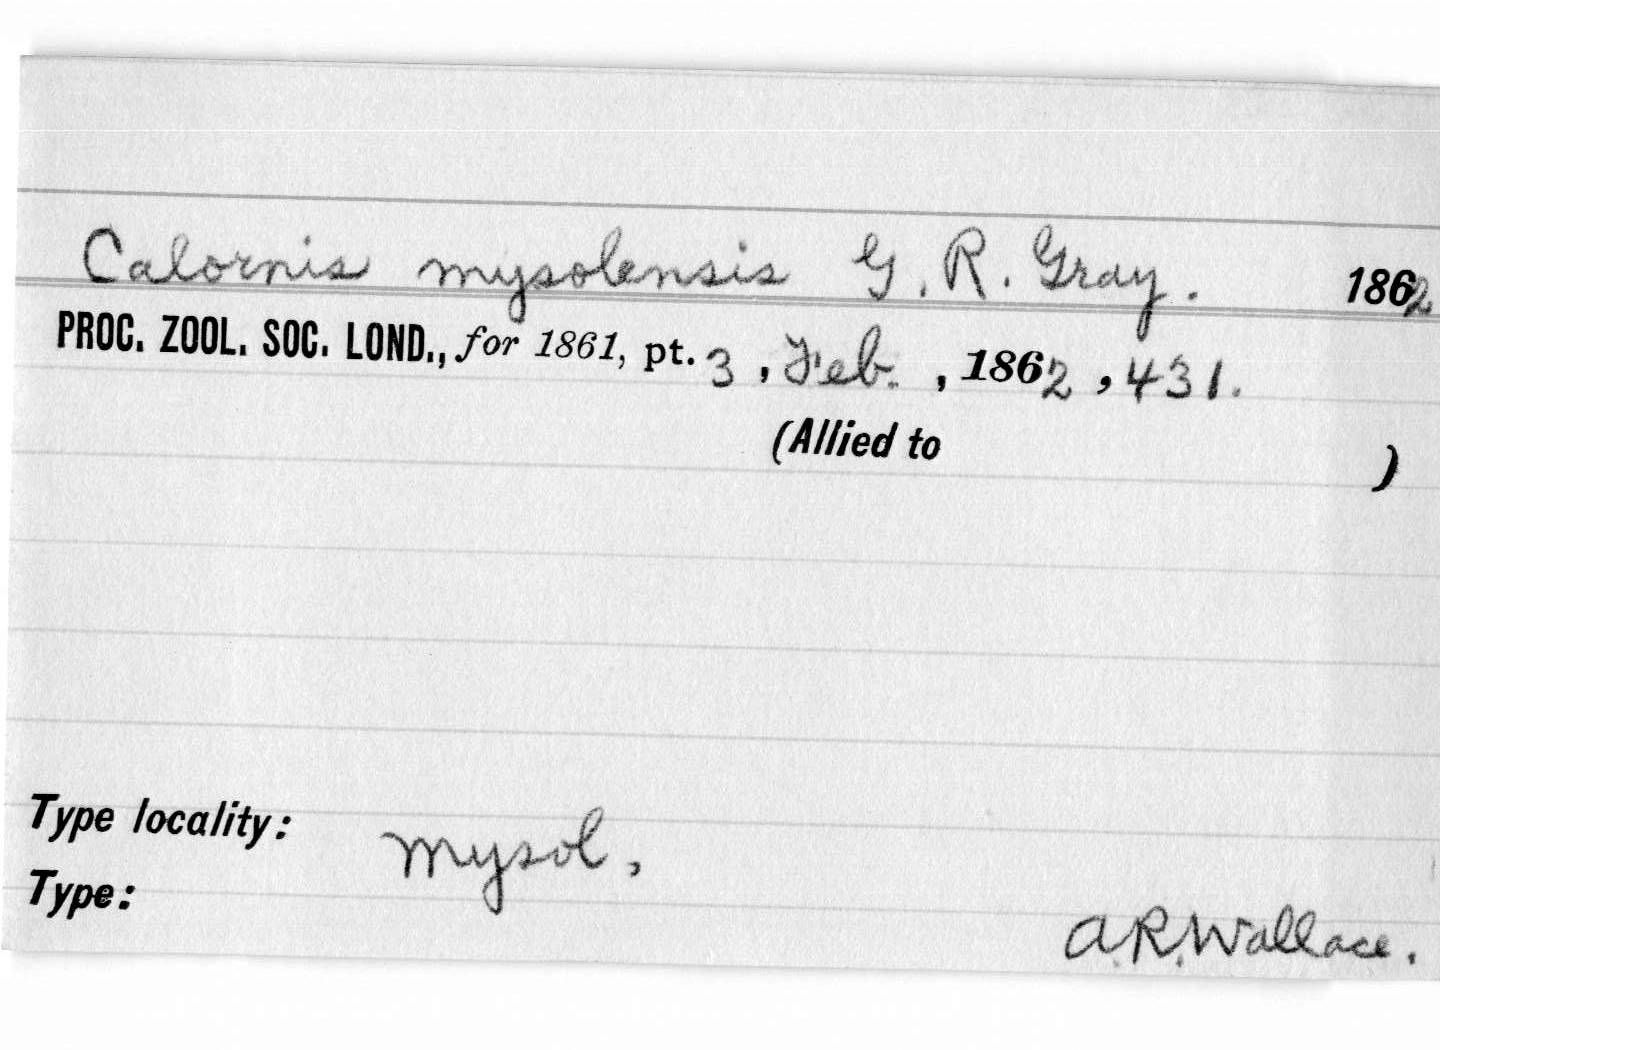 Calornis mysolensis G. R. Gray. 1862
PROC. ZOOL. SOC. LOND., for 1861, pt. 3, Feb. , 1862, 431.
(Allied to )
Type locality: Mysol,
Type:
A.R.Wallace.